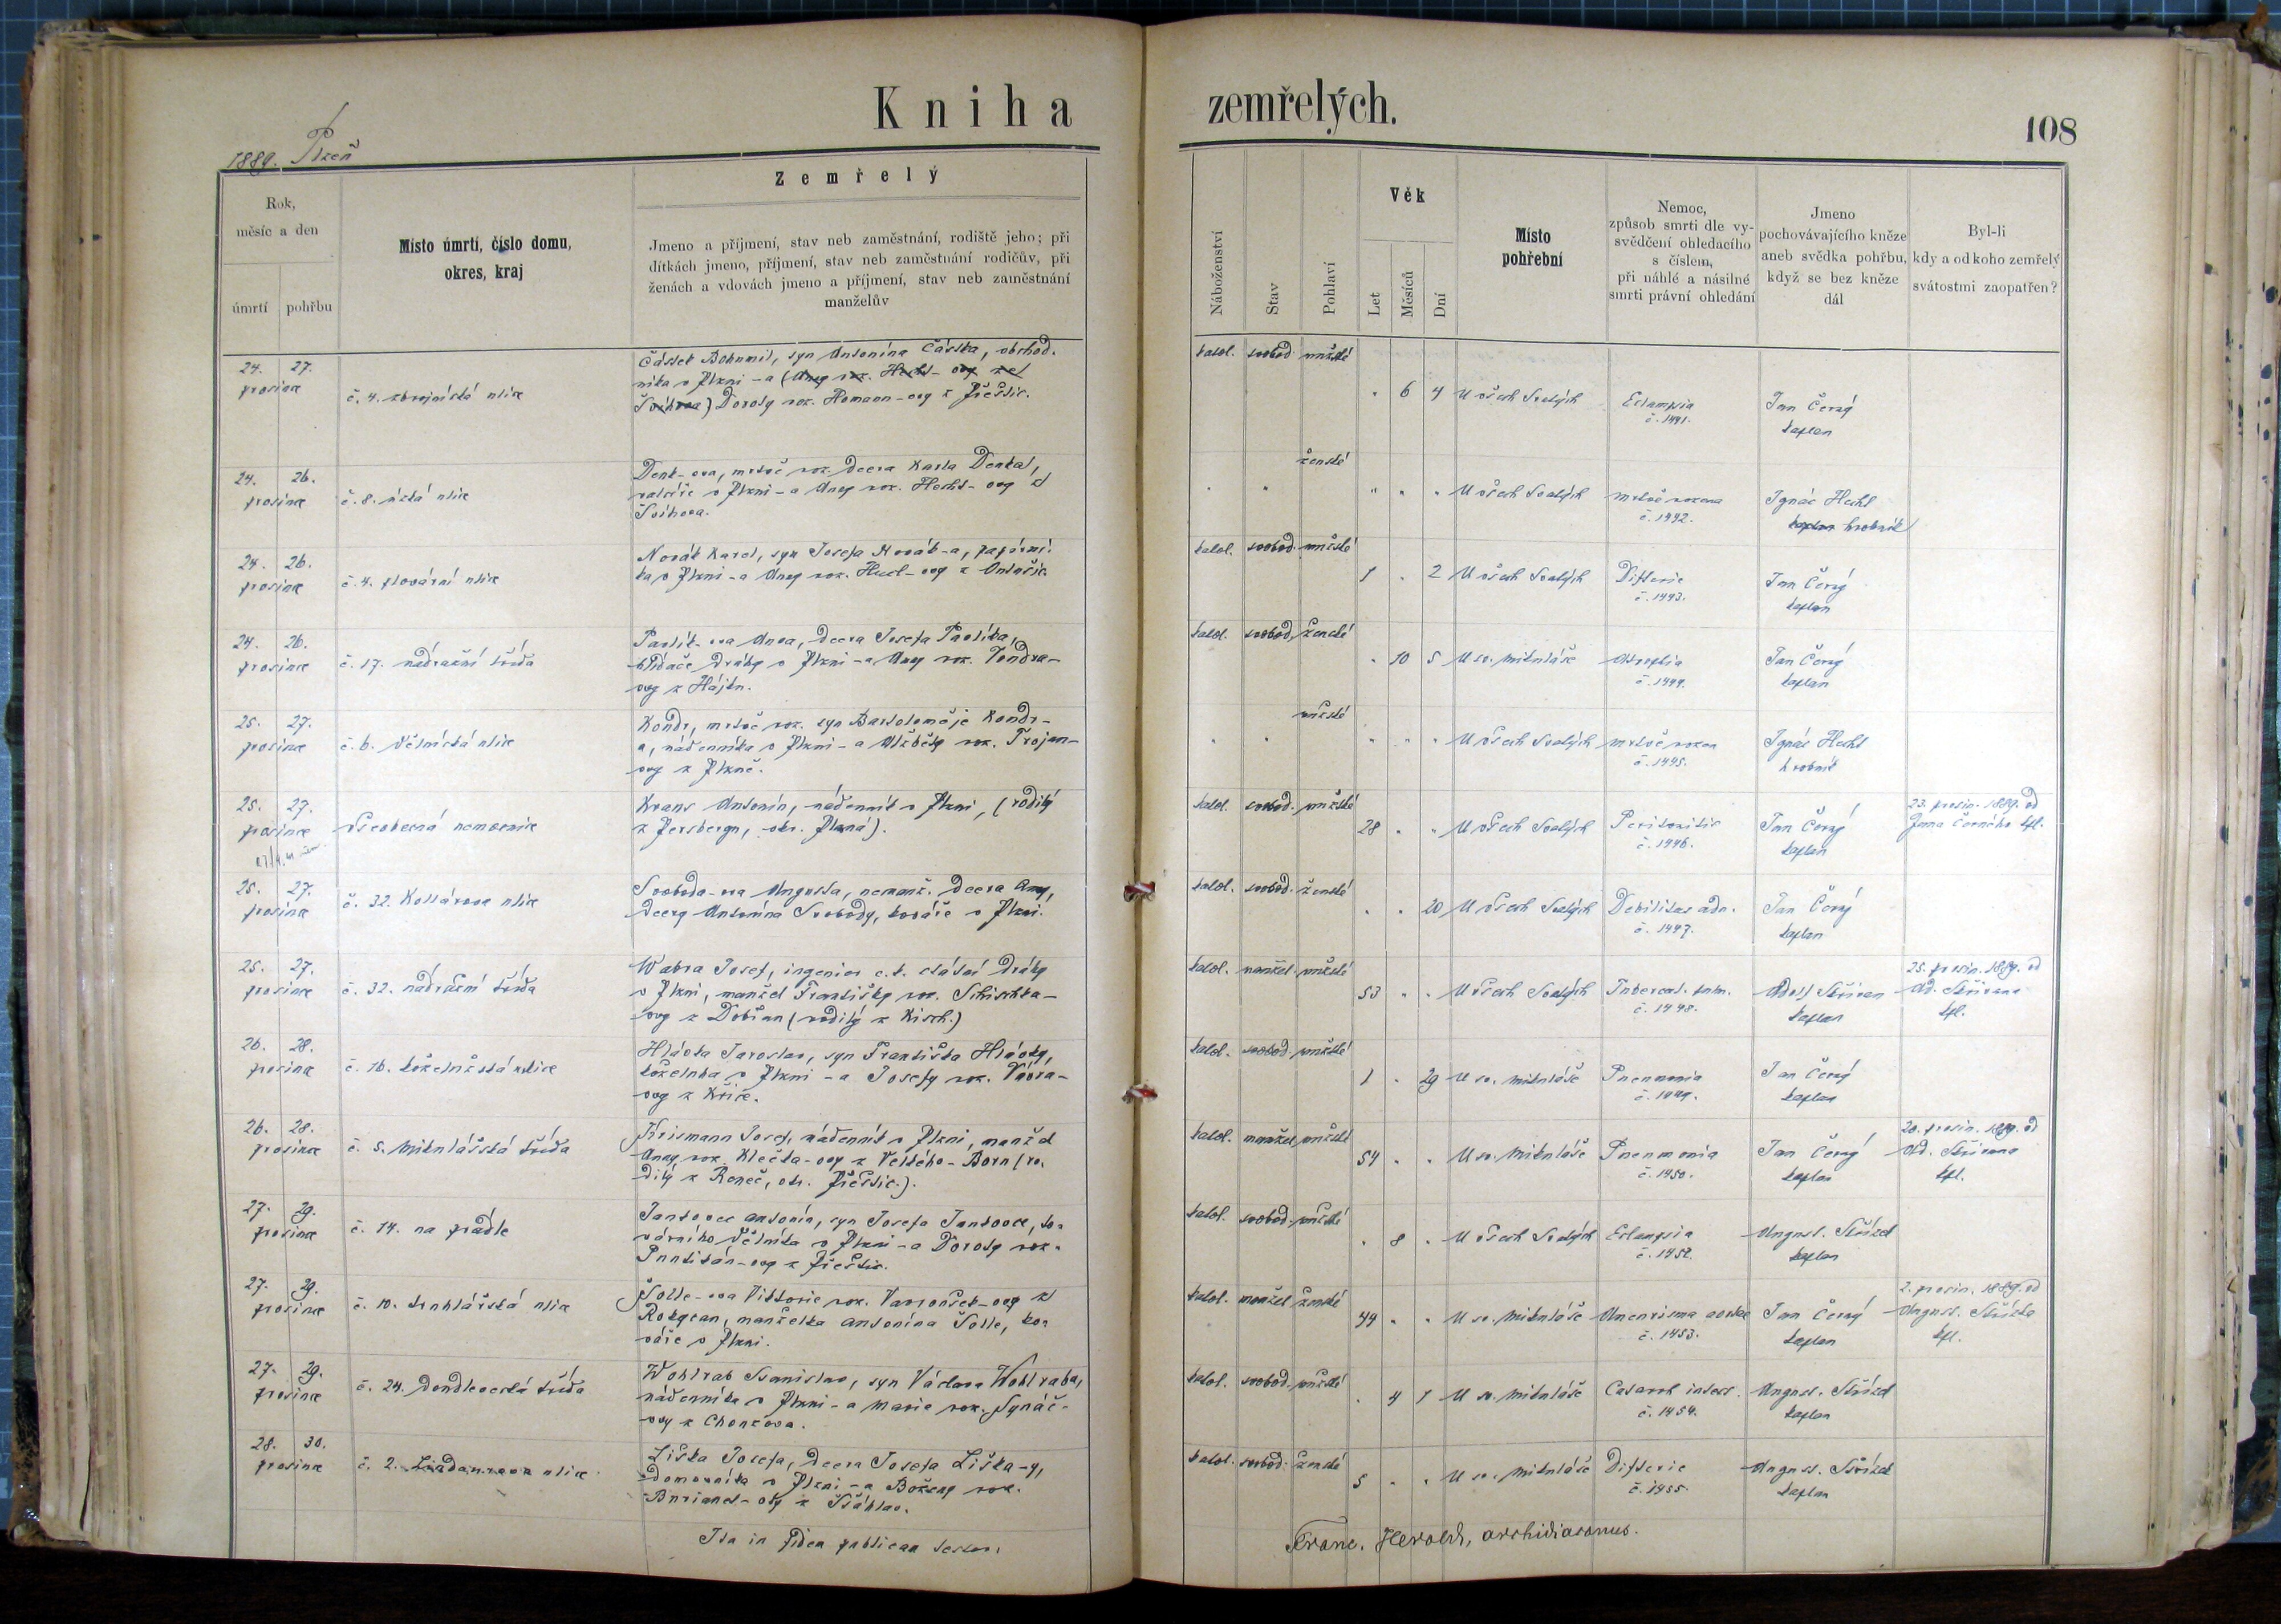 Kniha zemřelých.
108
1889. Plzeň
Rok,
měsíc a den
úmrtí
pohřbu
Místo úmrtí, číslo domu,
okres, kraj
Zemřelý
Jmeno a příjmení, stav neb zaměstnání, rodiště jeho; při
dítkách jmeno, příjmení, stav neb zaměstnání rodičův, při
ženách a vdovách jmeno a příjmení, stav neb zaměstnání
manželův
Náboženství
Stav
Pohlaví
Věk
Let
Měsíců
Dní
Místo
pohřební
Nemoc,
způsob smrti dle vy-
svědčení ohledacího
s číslem,
při náhlé a násilné
smrti právní ohledání
Jmeno
pochovávajícího kněze
aneb svědka pohřbu,
když se bez kněze
dál
Byl-li
kdy a od koho zemřelý
svátostmi zaopatřen?
24. 27.
prosince
č. 4. zbrojnická ulice
Částek Bohumil, syn Antonína Částka, obchod.
níka v Plzni - a (Anny roz. Hechl-ovy ze
Švihova) Doroty roz. Homann-ovy z Přeštic.
katol. svobod. mužské
" 6 4 U všech Svatých
Eclampsia
č. 1441.
Jan Černý
kaplan
24. 26.
prosince
č. 8. úzká ulice
Denk-ova, mrtvě roz. dcera Karla Denka,
v Plzni - a Anny roz. Hechl-ovy z
Švihova.
ženské
" " " U všech Svatých
mrtvě rozena
č. 1442.
Ignác Hechl
kaplan hrobník
24. 26.
prosince
č. 4. plovární ulice
Novák Karel, syn Josefa Novák-a,
v Plzni - a Anny roz.
katol. svobod. mužské
1 " 2 U všech Svatých
Difterie
č. 1443.
Jan Černý
kaplan
24. 26.
prosince
č. 17. nádražní třída
Pavlík-ova Anna, dcera Josefa Pavlíka,
hlídače dráhy v Plzni - a Anny roz. Vondra-
ovy z Hájku.
katol. svobod. ženské
" 10 5 U sv. Mikuláše
Atrophia
č. 1444.
Jan Černý
kaplan
25. 27.
prosince
č. 6. dělnická ulice
Kondr, mrtvě roz. syn Bartoloměje Kondr-
a, nádenníka v Plzni - a Alžběty roz. Trojan-
ovy z Plzně.
mužské
" " " U všech Svatých
mrtvě rozen
č. 1445.
Ignác Hechl
hrobník
25. 27.
prosince
Všeobecná nemocnice
Kraus Antonín, nádenník v Plzni, (rodilý
z Persbergu, okr. Planá).
katol. svobod. mužské
28 " " U všech Svatých
Peritonitis
č. 1446.
Jan Černý
kaplan
23. prosin. 1889. od
Jana Černého kpl.
25. 27.
prosince
č. 32. Kollárova ulice
Svoboda-ova Augusta, nemanž. dcera Anny,
dcery Antonína Svobody, kováře v Plzni.
katol. svobod. ženské
" " 20 U všech Svatých
Debilitas adn.
č. 1447.
Jan Černý
kaplan
25. 27.
prosince
č. 32. nádražní třída
Wabra Josef, ingenior c.k. státní dráhy
v Plzni, manžel Františky roz. Schischka-
ovy z Dobřan (rodilý z Kisch.)
katol. manžel. mužské
53 " " U všech Svatých
Tubercul. pulm.
č. 1448.
Adolf Skřivan
kaplan
25. prosin. 1889. od
Ad. Skřivana
kpl.
26. 28.
prosince
č. 16. koželužská ulice
Hlávka Jaroslav, syn Františka Hlávky,
koželuha v Plzni - a Josefy roz. Vávra-
ovy z Kříče.
katol. svobod. mužské
1 " 29 U sv. Mikuláše
Pneumonia
č. 1449.
Jan Černý
kaplan
26. 28.
prosince
č. 5. Mikulášská třída
Krismann Josef, nádenník v Plzni, manžel
Anny roz. Klečka-ovy z Velkého-Boru (ro-
dilý z Roneč, okr. Přeštic.).
katol. manžel. mužské
54 " " U sv. Mikuláše
Pneumonia
č. 1450.
Jan Černý
kaplan
20. prosin. 1889. od
Ad. Skřivana
kpl.
27. 29.
prosince
č. 14. na prádle
Jantovec Antonín, syn Josefa Jantovce, to-
várního dělníka v Plzni - a Doroty roz.
Puntikán-ovy z Přeštic.
katol. svobod. mužské
" 8 " U všech Svatých
Eclampsia
č. 1452.
August. Střízek
kaplan
27. 29.
prosince
č. 10. truhlářská ulice
Šolle-ova Viktorie roz. Vavroušek-ovy z
Rokycan, manželka Antonína Šolle, ko-
váře v Plzni.
katol. manžel. ženské
44 " " U sv. Mikuláše
Aneurisma aortae
č. 1453.
Jan Černý
kaplan
2. prosin. 1889. od
August. Střízka
kpl.
27. 29.
prosince
č. 24. doudlevecká třída
Wohlrab Stanislav, syn Václava Wohlraba,
nádenníka v Plzni - a Marie roz. Synáč-
ovy z Chonkova.
katol. svobod. mužské
" 4 1 U sv. Mikuláše
Catarrh intest.
č. 1454.
August. Střízek
kaplan
28. 30.
prosince
č. 2. ulice
Liška Josefa, dcera Josefa Liška-y,
domovníka v Plzni - a Boženy roz.
Burianek-ovy z Šťáhlav.
katol. svobod. ženské
5 " " U sv. Mikuláše
Difterie
č. 1455.
August. Střízek
kaplan
Ita in fidem publicam testor.
Franc. Herold, archidiaconus.